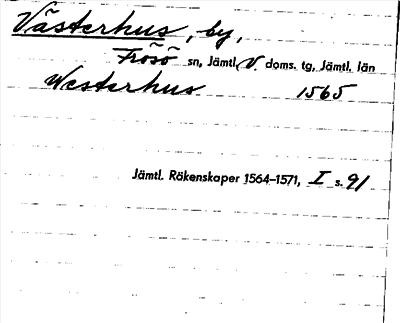 Västerhus, by,
Frösö sn, Jämtl. V. doms. tg, Jämtl. län
Westerhus 1565
Jämtl. Räkenskaper 1564–1571, I s. 91